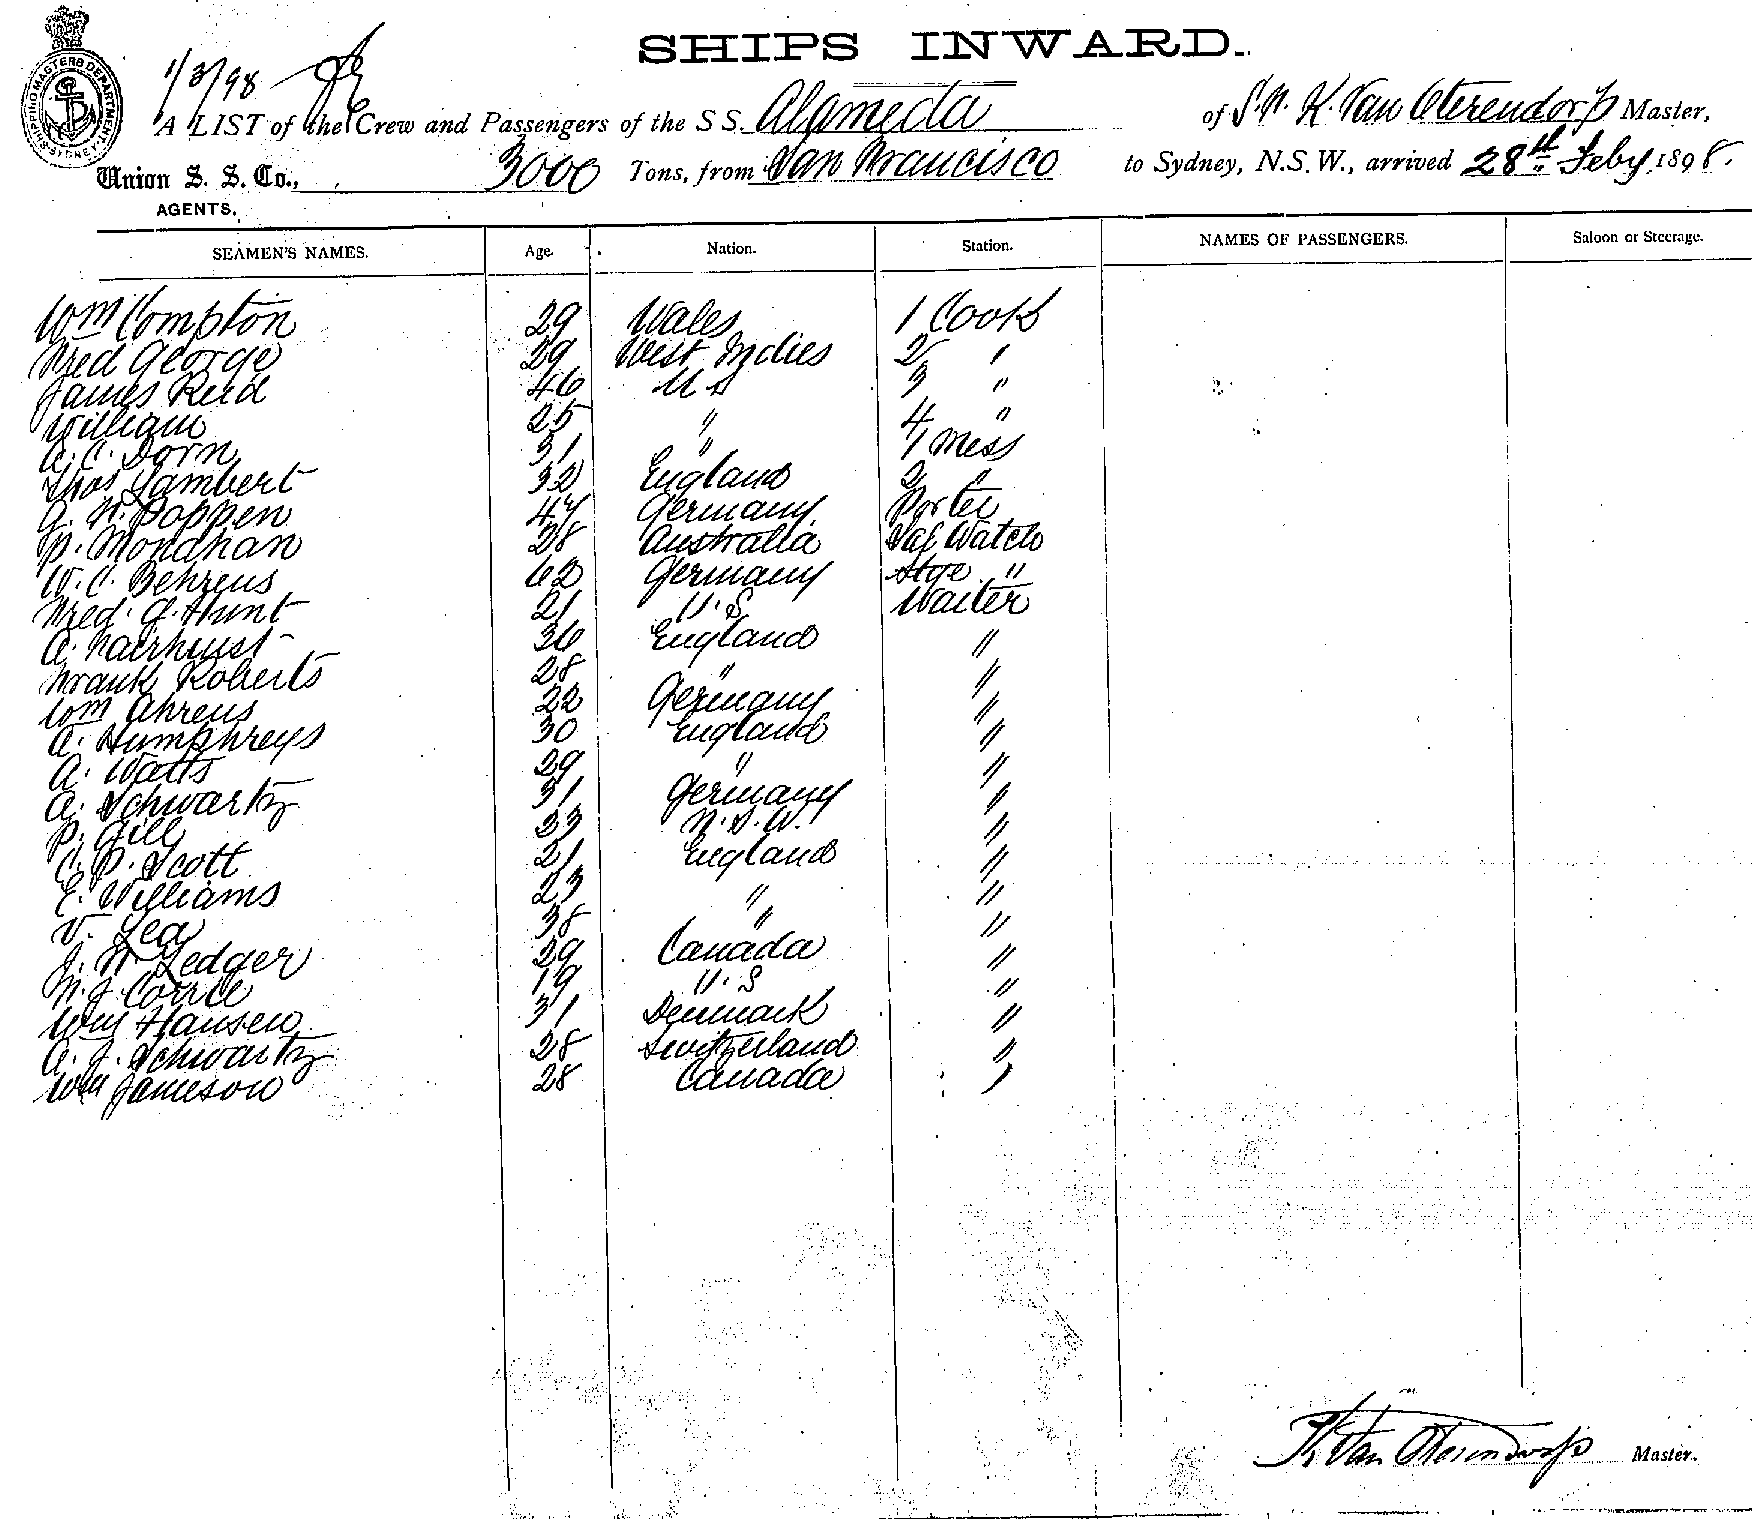 SHIPS INWARD.
SHIPPING MASTERS DEPARTMENT SYDNEY
1/3/98
A LIST of the Crew and Passengers of the S S. Alameda of S.F. K. Van Oterendorp Master,
Union S. S. Co., 3000 Tons, from San Francisco to Sydney, N.S.W., arrived 28th Feby 1898.
AGENTS.
SEAMEN'S NAMES. Age. Nation. Station. NAMES OF PASSENGERS. Saloon or Steerage.
Wm Compton 29 Wales 1 Cook
Fred George 29 West Indies 2 "
James Reid 46 U S 3 "
William 25 " 4 "
A. C. Dorn 31 " 1 Mess
Thos Lambert 32 England 2
G. W. Poppen 47 Germany Porter
P. Monahan 28 Australia Sal Watch
W. C. Behrens 62 Germany Stge "
Fred. G. Hunt 21 U.S Waiter
A. Fairhurst 36 England "
Frank Roberts 28 " "
Wm Ahrens 22 Germany "
A. Humphreys 30 England "
A. Watts 29 " "
A. Schwartz 31 Germany "
P. Gill 23 N.S.W. "
C. P. Scott 21 England "
E. Williams 23 " "
V. Lea 38 " "
J. W Ledger 29 Canada "
19 U.S "
Wm Hansen 31 Denmark "
A. J. Schwartz 28 Switzerland "
Wm Jameson 28 Canada "
K Van Oterendorp Master.